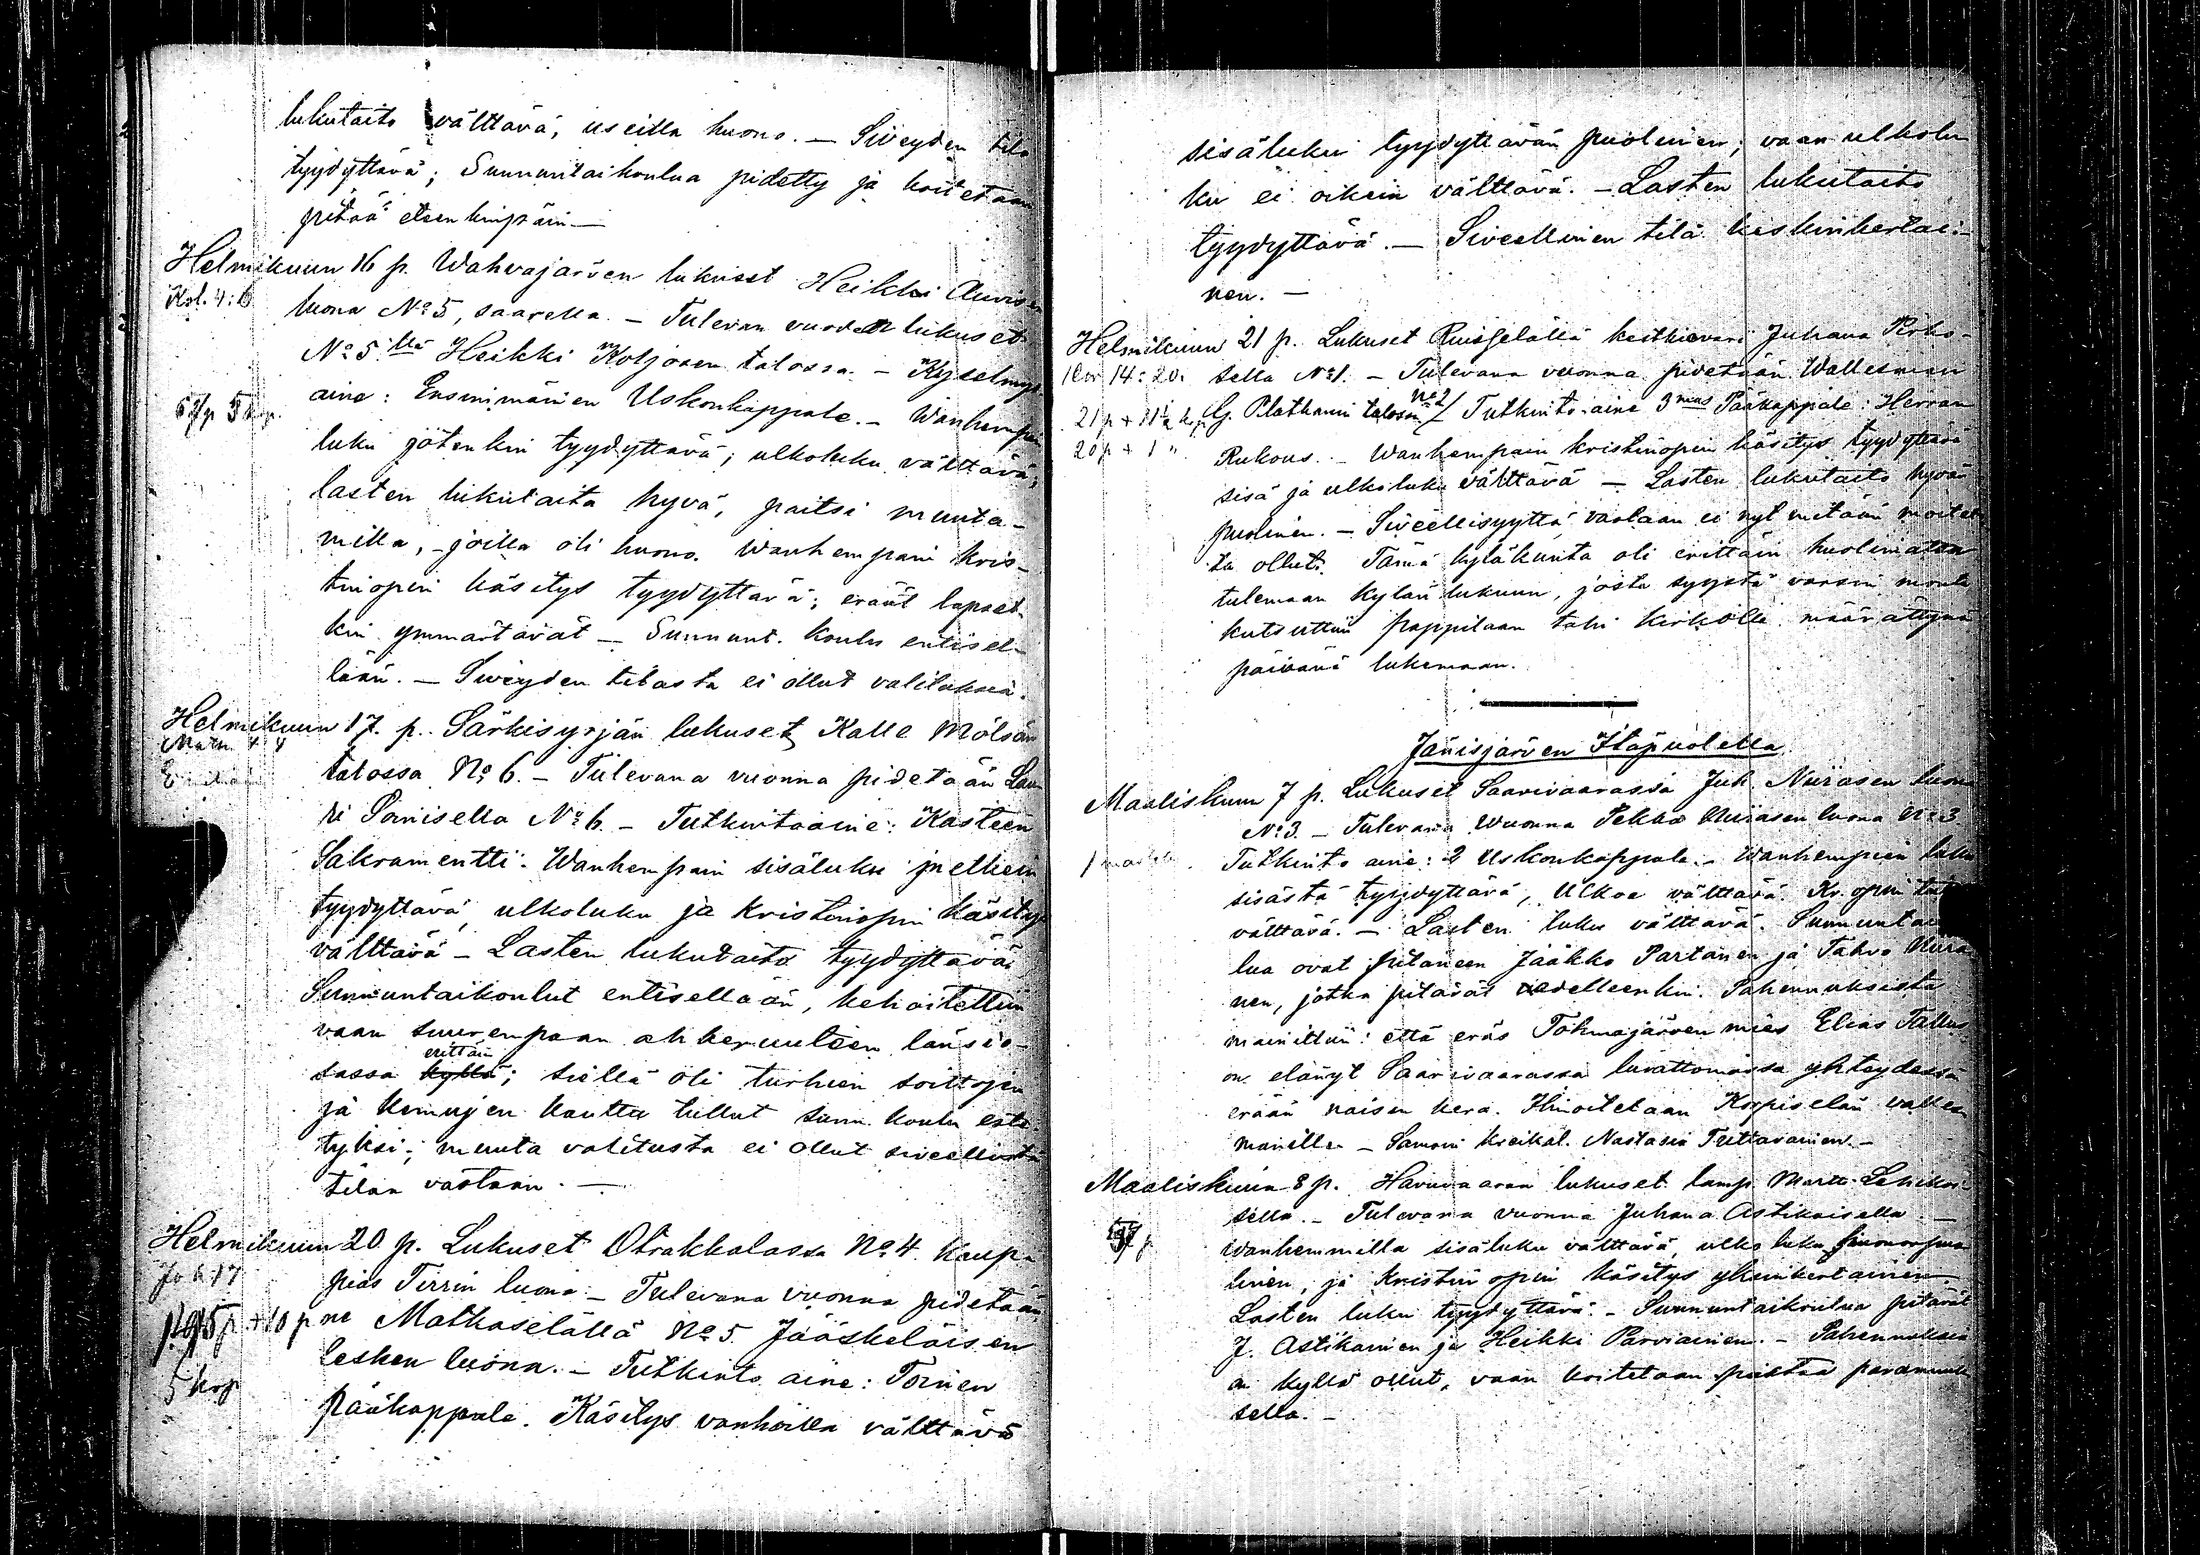 lukutaito välttävä, useilla huono. — Siveyden tila
tyydyttävä; Sunnuntaikoulua pidetty ja koitetaan
pitää eteenkinpäin —
Helmikuun 16 p. Wahvajärven lukuset Heikki
Kol. 4:6
luona No 5, saarella. — Tulevan vuoden lukuset
No 5 llä Heikki Koljosen talossa. — Kyselmys
5 kop.
aine: Ensimmäinen Uskonkappale. — Wanhempain
luku jötenkin tyydyttävä; ulkoluku välttävä;
lasten lukutaito hyvä, paitsi muuta-
milla, joilla oli huono. Wanhempain kris-
tinopin käsitys tyydyttävä; eräät lapset-
kin ymmärtävät — Sunnunt. koulu entisel-
lään. — Siveyden tilasta ei ollut valituksia.
Helmikuun 17. p. Särkisyrjän lukuset Kalle Mölsän
talossa No 6. — Tulevana vuonna pidetään Lau-
ri Poinisella No 6. — Tutkintoaine: Kasteen
Sakramentti. Wanhempain sisäluku melkein
tyydyttävä, ulkoluku ja kristinopin käsitys
välttävä — Lasten lukutaito tyydyttävä.
Sunnuntaikoulut entisellään, kehoitettiin
vaan suurempaan ahkeruuteen länsio-
sassa kyllä; siellä oli turhien soittojen
erittäin
ja kemujen kautta tullut sunn. koulu este-
tyksi; muuta valitusta ei ollut siveellistä
tilaa vastaan. —
Helmikuun 20 p. Lukuset Otrakkalassa No 4. Kaup-
Jo 6.17
pias Tirrin luona — Tulevana vuonna pidetään
+ 10 p
ne Matkaselällä No 5 Jääskeläisen
lesken luona. — Tutkinto aine: Toinen
5 kop
Pääkappale. Käsitys vanhoilla välttävä
sisäluku tyydyttävän puolinen; vaan ulkolu-
ku ei oikein välttävä. — Lasten lukutaito
tyydyttävä. — Siveellinen tila keskinkertai-
nen. —
Helmikuun 21 p. Lukuset Ruisselällä kestikievari Juhana Pirho-
1 Cor 14:20.
sella No 1. — Tulevana vuonna pidetään Wallesman
No 2
G. Plathanin talossa / Tutkinto-aine 3 mas Pääkappale: Herran
20 p + 1 "
Rukous. — Wanhempain kristinopin käsitys tyydyttävä
sisä ja ulkoluku välttävä — Lasten lukutaito hyvän
puolinen. — Siveellisyyttä vastaan ei nyt mitään moitet-
ta ollut. Tämä kyläkunta oli erittäin huolimaton
tulemaan kylän lukuun, josta syystä varsin monta
kutsuttiin pappilaan tahi kirkolle määrättynä
päivänä lukemaan.
Jänisjärven Itäpuolella
Maaliskuun 7 p. Lukuset Saarivaarassa Juh. Nuirasen luona
No 3. — Tulevana Wuonna Pekka Nuirasen luona No 3
Tutkinto aine: 2 Uskonkappale. — Wanhempien luku
sisästä tyydyttävä, Ulkoa välttävä. Kr. opin
välttävä. — Lasten luku välttävä. Sunnuntai
lua ovat pitäneen Jaakko Partanen ja Tahvo Nuira-
nen, jotka pitävät edelleenkin. Pahennuksista
mainittiin: että eräs Tohmajärven mies Elias
on elänyt Saarivaarassa luvattomassa yhteydessä
erään naisen kera. Ilmoitetaan Korpiselän valles-
manille — Samoin kreikal. Nastasia Tuttavainen. —
Maaliskuun 8 p. Havuvaaran lukuset lamp. Martti Lehikoi-
sella. — Tulevana vuonna Juhana Astikaisella —
Wanhemmilla sisäluku välttävä, ulko luku huononpuo-
linen, ja Kristin opin käsitys yksinkertainen.
Lasten luku tyydyttävä. — Sunnuntaikoulua pitävät
J. Astikainen ja Heikki Parviainen. — Pahennuksia
on kyllä ollut, vaan koitetaan poistaa paramuuk-
sella. —